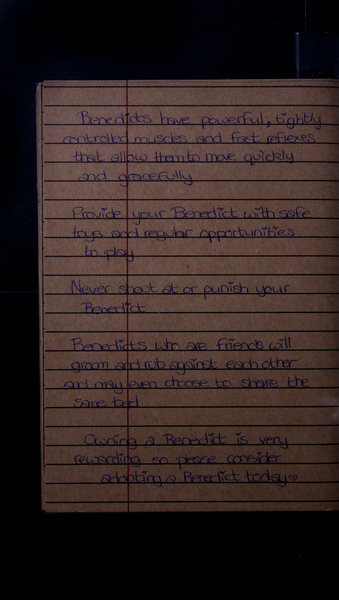 Benedicts have powerful, tightly
controlled muscles and fast reflexes
that allow them to move quickly
and gracefully
Provide your Benedict with safe
toys and regular opportunities
to play
Never shout at or punish your
Benedict
Benedicts who are friends will
groom and rub against each other
and may even choose to share the
same bed
Owning a Benedict is very
rewarding so please consider
adopting a Benedict today